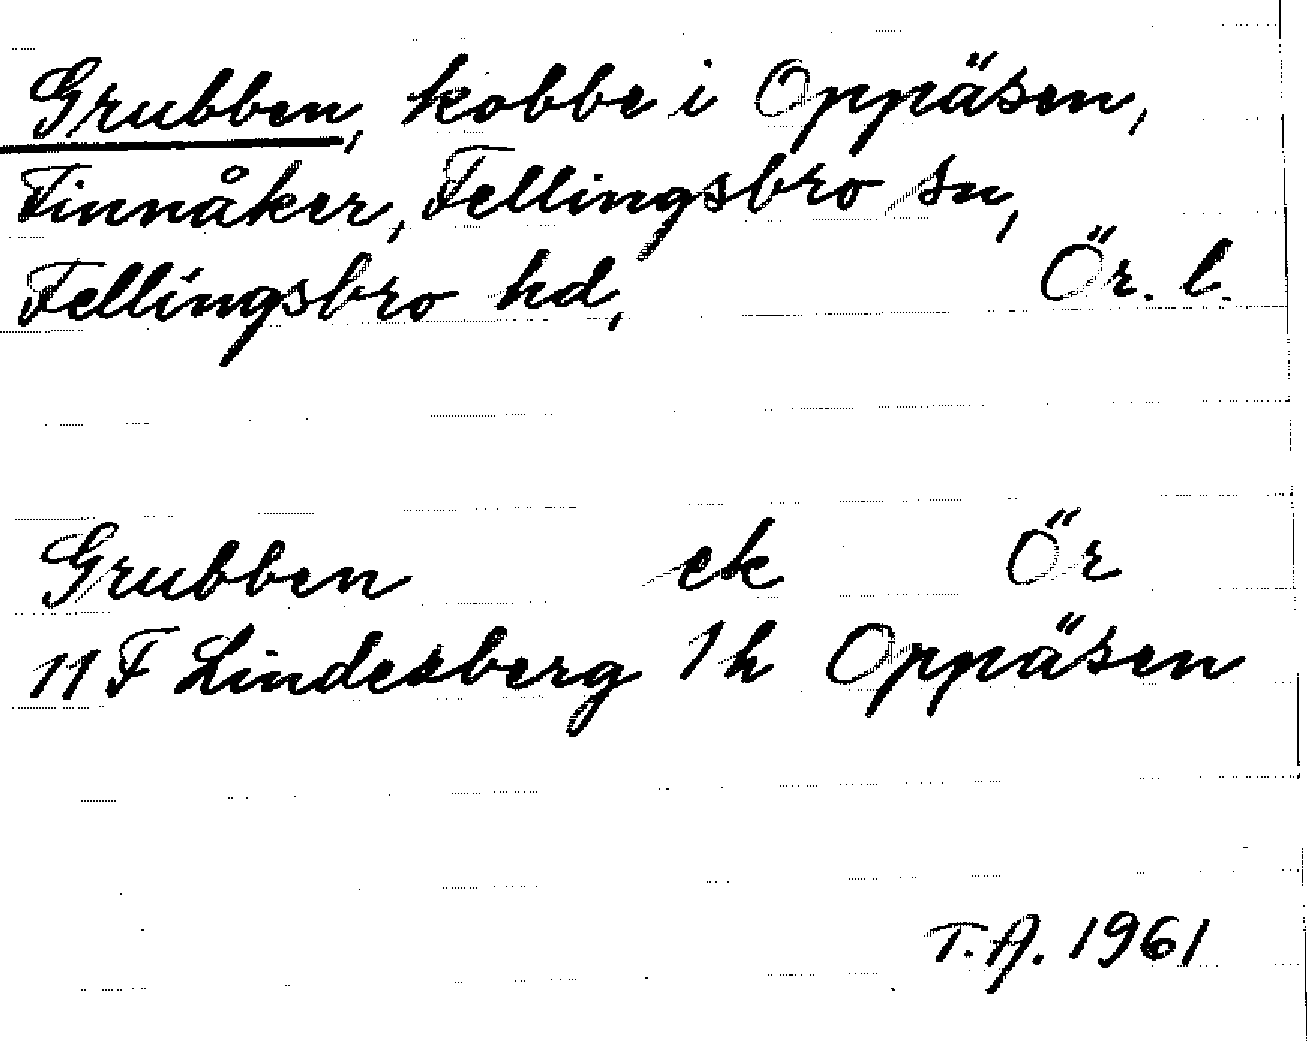 Grubben, kobbe i Oppäsen,
Finnåker, Fellingsbro sn,
Fellingsbro hd, Ör. l.
Grubben ek Ör
11 F Lindesberg 1 h Oppäsen
T.A. 1961